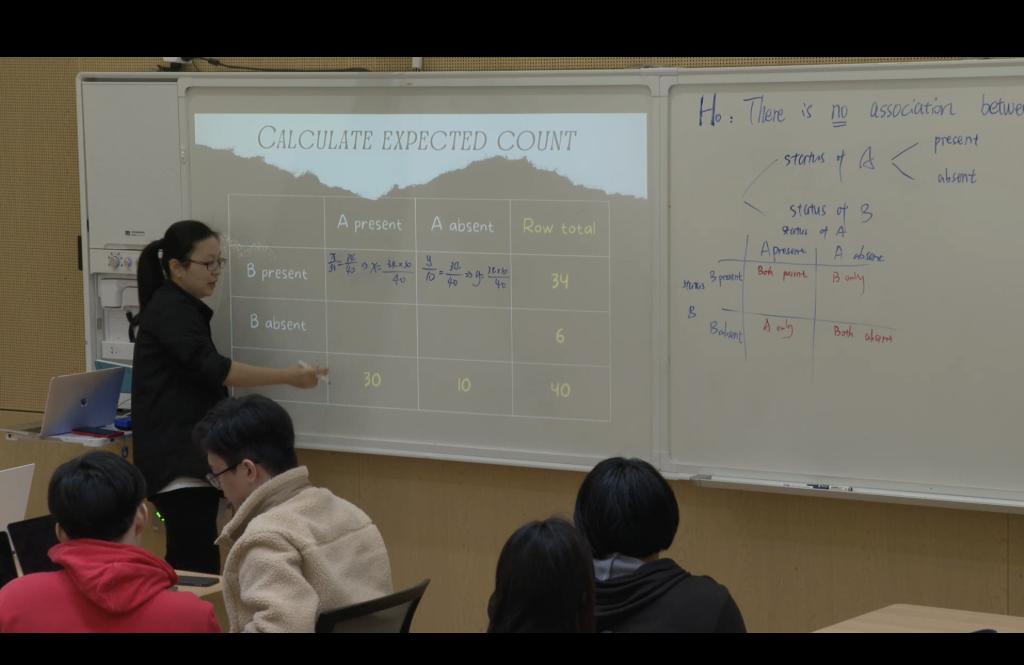 CALCULATE EXPECTED COUNT
A present A absent Row total
B present 34
B absent 6
30 10 40
H₀: There is no association betwee
status of A
present
absent
status of B
status of A
A present A absent
status B present Both B only
B
B absent A only Both absent